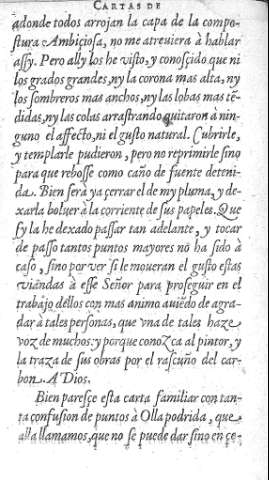 CARTAS DE
adonde todos arrojan la capa de la compo-
stura Ambiçiosa, no me atreuiera à hablar
assy. Pero ally los he visto, y conosçido que ni
los grados grandes, ny la corona mas alta, ny
los sombreros mas anchos, ny las lobas mas tẽ-
didas, ny las colas arrastrando quitaron à nin-
guno el affecto, ni el gusto natural. Cubrirle,
y templarle pudieron, pero no reprimirle sino
para que rebosse como caño de fuente deteni-
da. Bien serà ya çerrar el de my pluma, y de-
xarla boluer à la corriente de sus papeles. Que
sy la he dexado passar tan adelante, y tocar
de passo tantos puntos mayores no ha sido à
caso, sino por ver si le moueran el gusto estas
viandas à esse Señor para proseguir en el
trabajo dellos con mas animo auiẽdo de agra-
dar à tales personas, que vna de tales haze
voz de muchos: y porque conozca al pintor, y
la traza de sus obras por el rascuño del car-
bon. A Dios.
Bien paresçe esta carta familiar con tan-
ta confusion de puntos à Olla podrida, que
alla llamamos, que no se puede dar sino en çe-